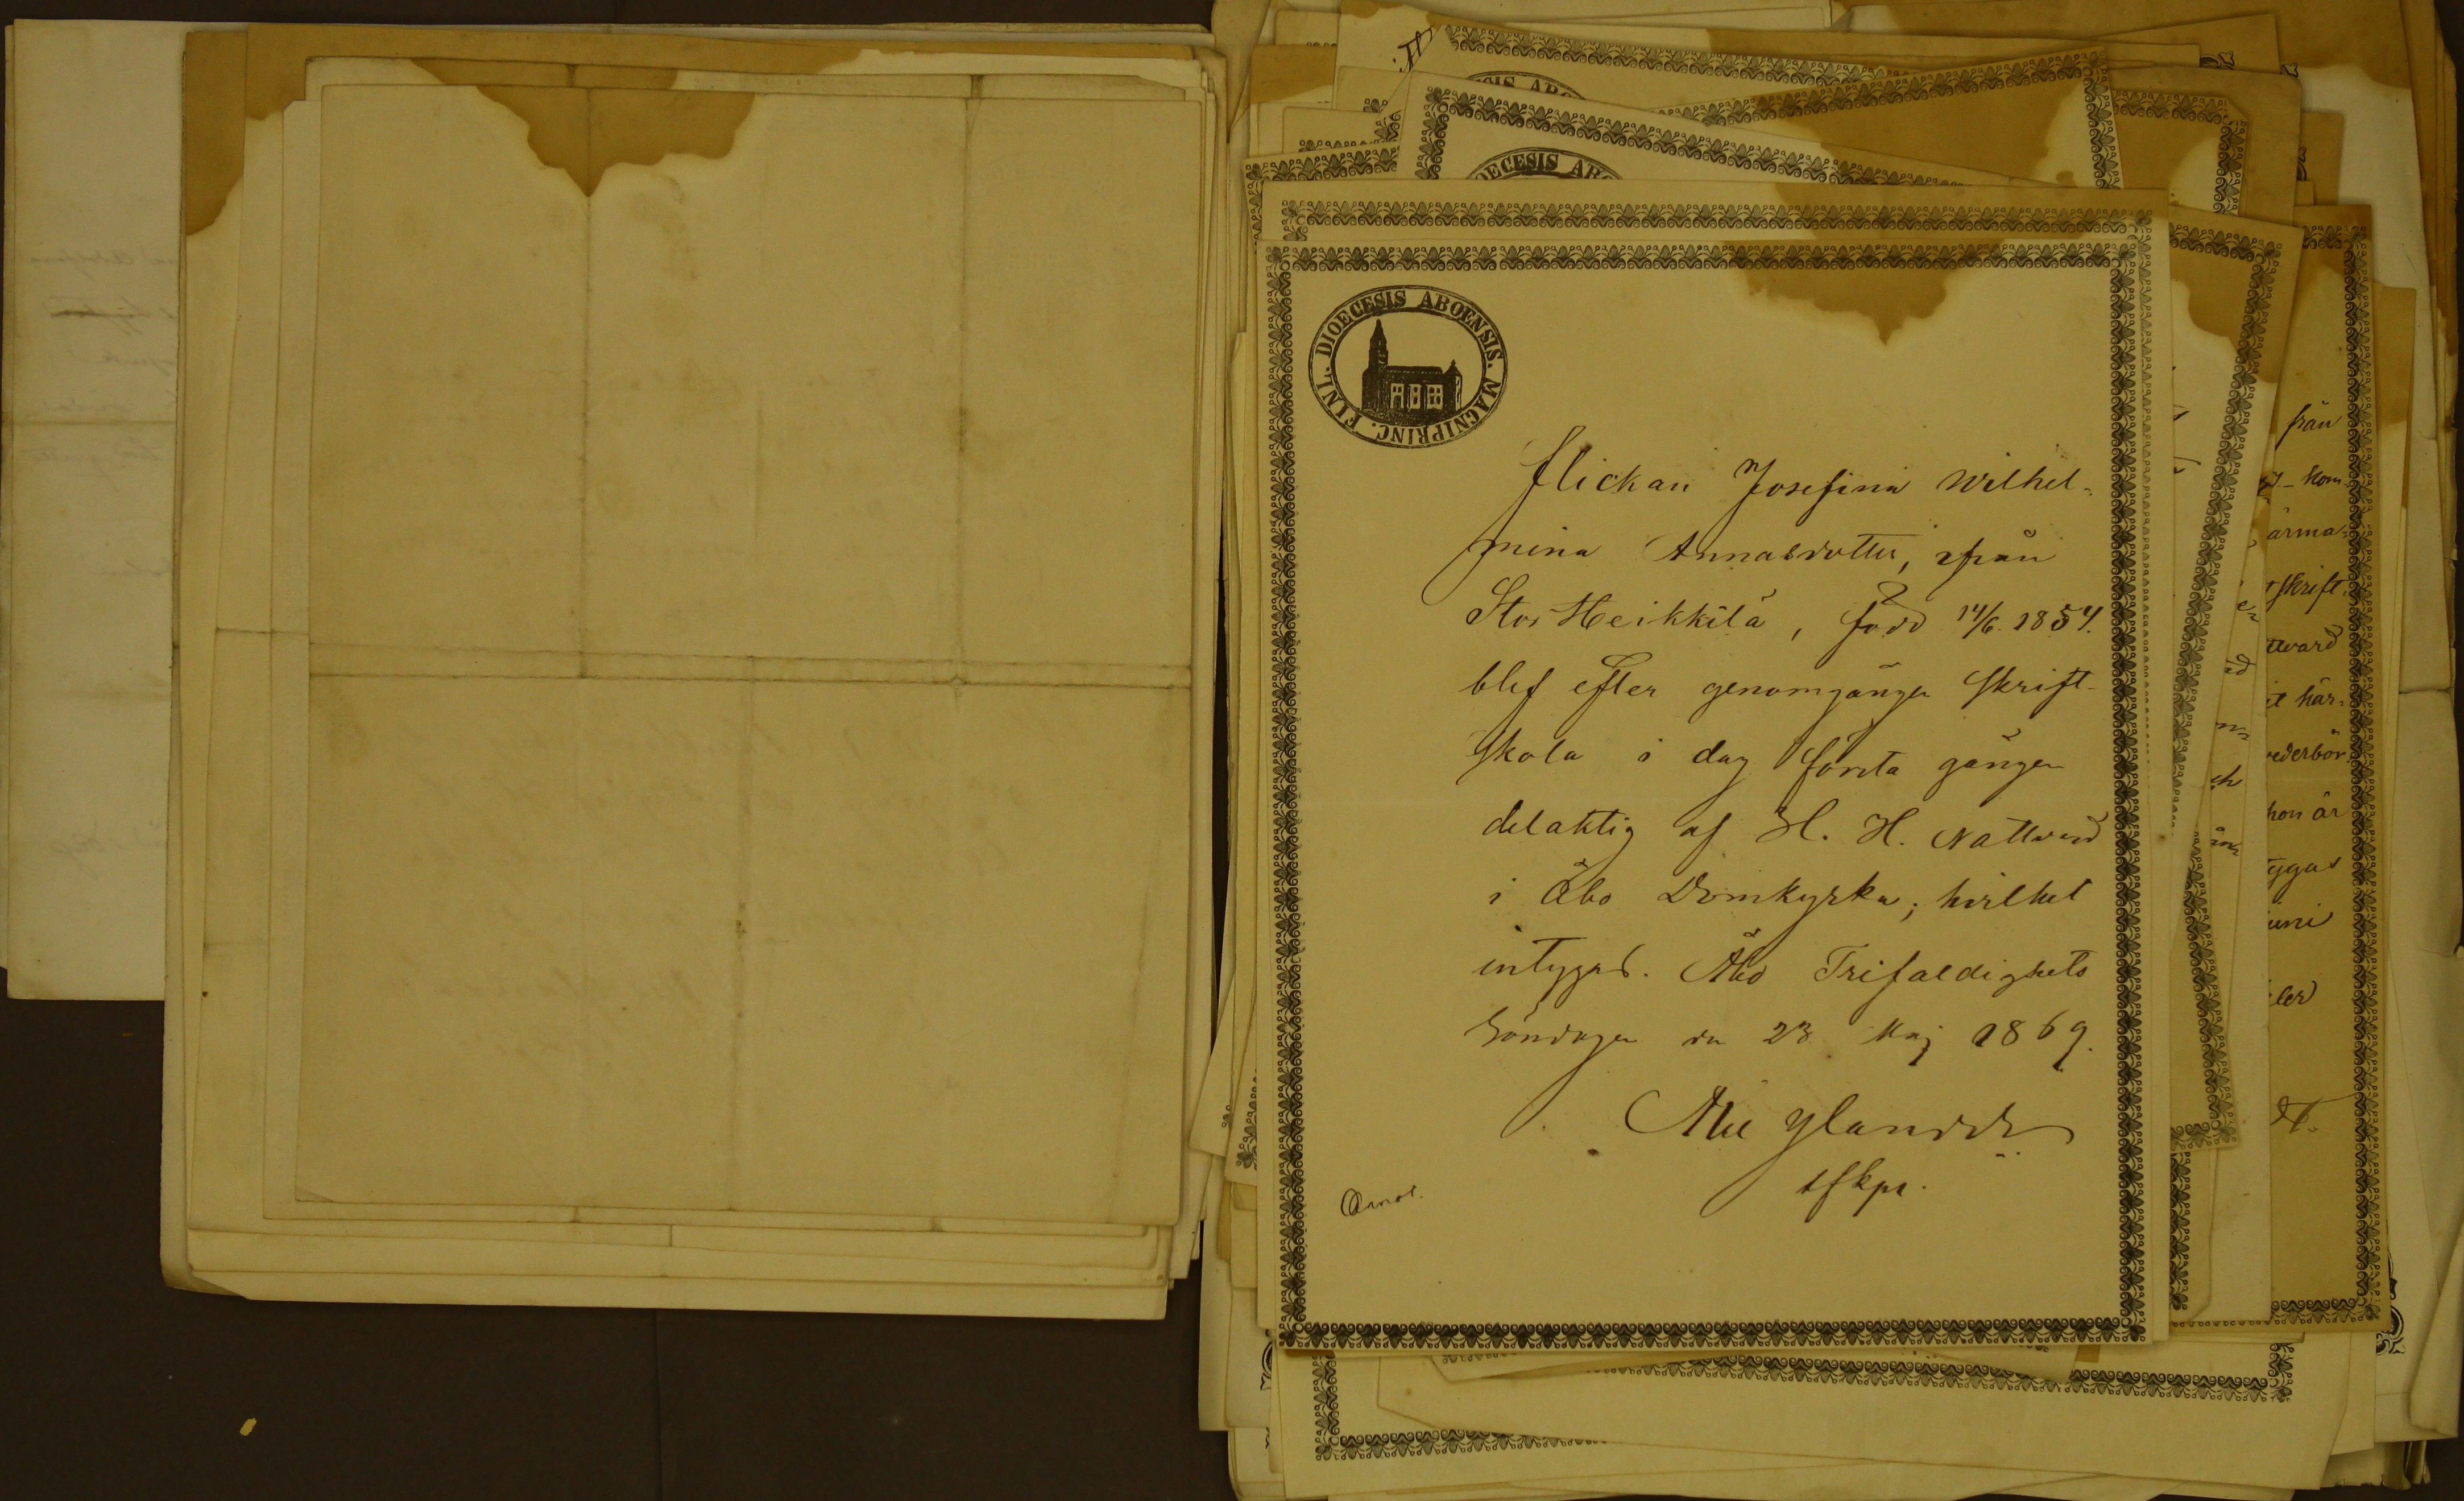 DIOECESIS ABOENSIS. MAGNIPRINC. FINL.
flickan Josefina Wilhel-
mina Annasdotter, ifrån
Stor Heikkilä, född 14/6. 1854.
blef efter genomgången Skrift-
skola i dag första gången
delaktig af H. H. Nattvard
i Åbo Domkyrka; hvilket
intygas. Åbo Trifaldighets
Söndagen den 23 Maj 1869.
Ylander
DIOECESIS ABO
från
kom
ärma-
skrift-
ttvard
här-
vederbör
hon är
tygas
juni